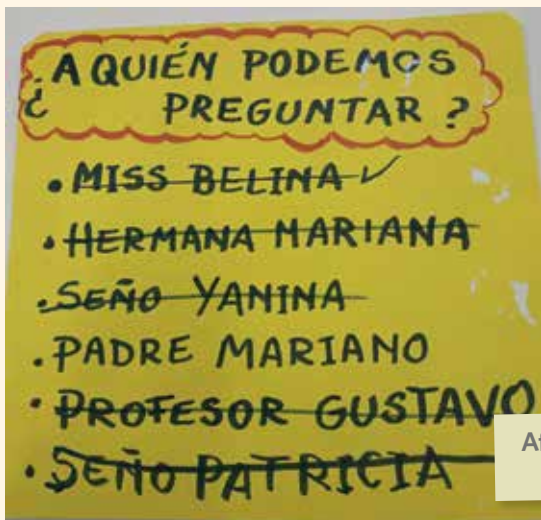 ¿A QUIÉN PODEMOS
PREGUNTAR?
• MISS BELINA ✓
• HERMANA MARIANA
• SEÑO YANINA
• PADRE MARIANO
• PROFESOR GUSTAVO
• SEÑO PATRICIA